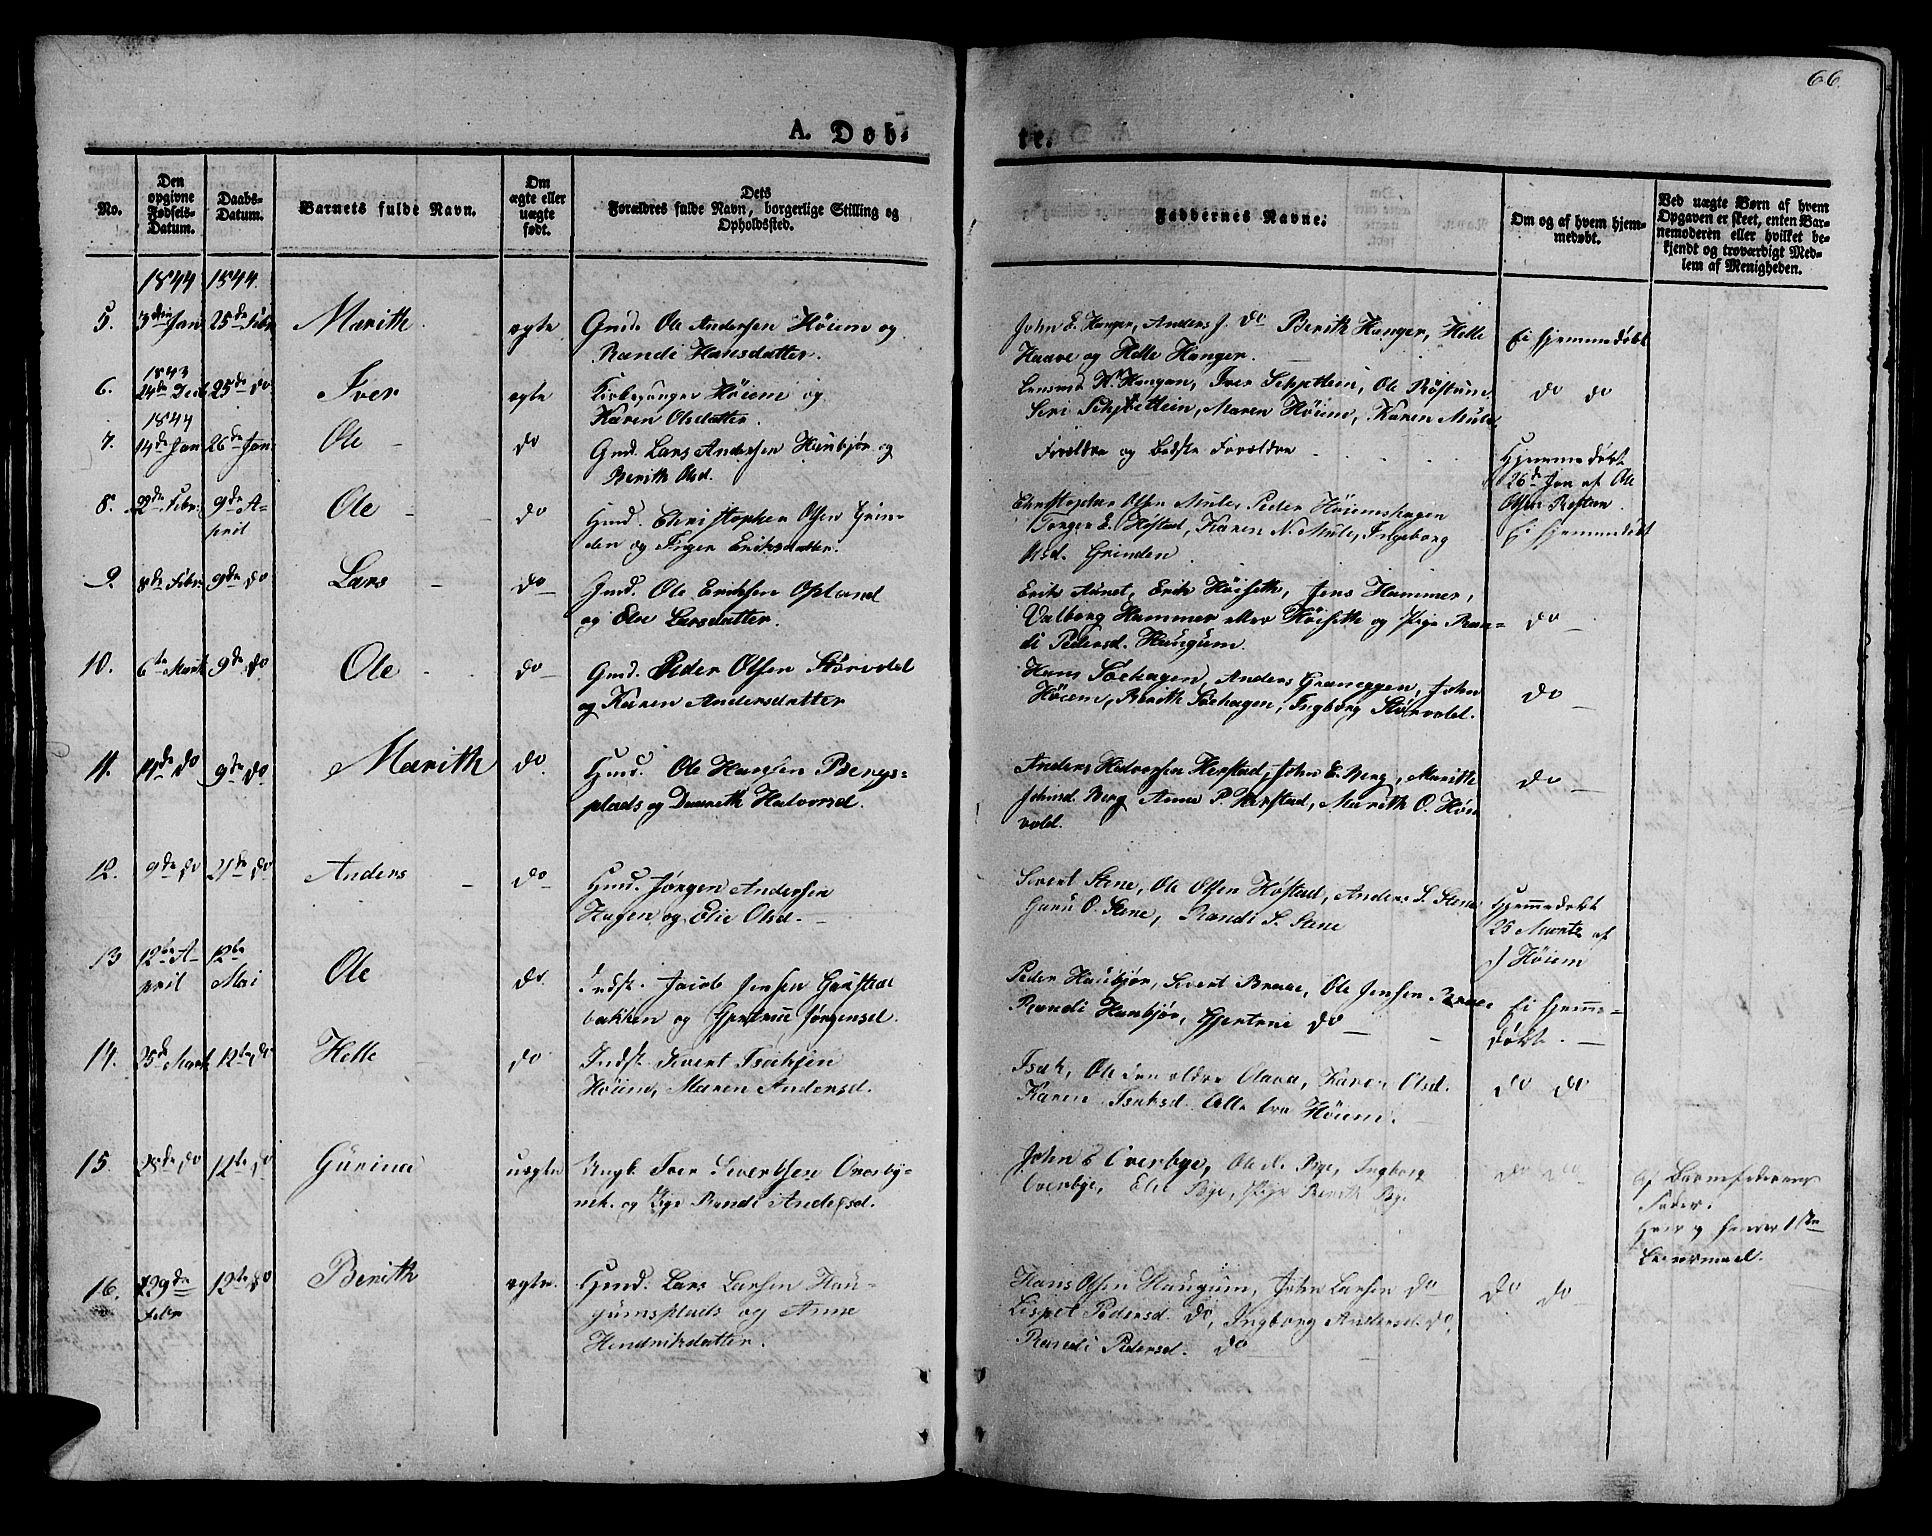 66.
A. Døb-
te.
No.
Den opgivne Fødsels-Datum.
Daabs-Datum.
Barnets fulde Navn.
Om ægte eller uægte født.
Dets Forældres fulde Navn, borgerlige Stilling og Opholdssted.
Faddernes Navne.
Om og af hvem hjem-medøbt.
Ved uægte Børn af hvem Opgaven er skeet, enten Bar-nemoderen eller hvilket be-kjendt og troværdigt Med-lem af Menigheden.
1844 1844.
5. 3die Jan 25de Febr Marith ægte Gmd. Ole Andersen Høiem og
Randi Hansdatter.
John E. Hanger, Anders J. do Berith Hanger, Helle
Haave og Helle Hanger.
Ei hjemmedøbt
1843
6. 24de Dec 25de do Iver ægte Kirkesanger Høiem og
Karen Olsdatter.
Haugan, Iver Ole Røstum
Siri Maren Høiem, Karen Mule
do do
1844
7. 14de Jan 26de Jan Ole do Gmd. Lars Andersen Haubjør og
Berith Olsd.
Forældre og Bedste Forældre
Hjemmedøbt
26de Jan af Ole
Olsen Rostem
8. 22de Febr. 9de A-
pril
Ole do Hmd. Christopher Olsen Grin-
den og Inger Eriksdatter.
Christopher Olsen Mule, Peder Høiemshagen
Torger E. Høstad, Karen N. Mule, Ingeborg
Olsd. Grinden
Ei hjemmedøbt
9. 8de Febr. 9de do Lars do Gmd. Ole Eriksen Opland
og Elie Larsdatter.
Erik Aunet, Erik Høiseth, Jens Hammer,
Valborg Hammer eller Høiseth og Pige Ran-
di Pedersd. Haugum.
do
10. 6te Marts 9de do Ole do Gmd. Peder Olsen Størvold
og Karen Andersdatter
Hans Søehagen, Anders John
Høiem, Berith Søehagen, Ingborg Størvold.
do
11. 14de do 9de do Marith do Hmd. Ole Hansen Bergs-
plads og Halvorsd.
Anders Halvorsen Herstad, John E. Berg, Marith
Johnsd. Berg Anne P. Herstad, Marith O. Høi-
vold.
do
12. 9de do 21de do Anders do Hmd. Jørgen Andersen
Hagen og Elie Olsd.
Sivert Stene, Ole Olsen Høstad, Anders S. Stene
Guru O. Stene, Randi S. Stene
Hjemmedøbt
25 Marts af
J Høiem
13 12te A-
pril
12te
Mai
Ole do. Indst. Jacob Jensen Gaustad
bakken og Gjertrue Jørgensd.
Peder Haubjør, Sivert Braae, Ole Jensen Braae
Randi Haubjør, Gjertrue do
Ei hjemme-
døbt.
14. 25de Marts 12te do Helle do Indst. Sivert Isaksen
Høiem, Maren Andersd.
Isak, Ole den ældre Olava, Karen Olsd.
Karen Isaksd. Alle fra Høiem.
do do
15. 28de do 12te do Gurina uægte Ungk. Iver Sivertsen Overby-
mek. og Pige Randi Andersd.
John E Overbye, Ole Bye, Ingborg
Overbye, Elie Bye, Pige Berith Bye
do do
af Barnefaderens
Fader.
Hans og hendes 1ste
Leiermaal.
16. 29de
Febr
12te do Berith ægte. Hmd. Lars Larsen Hau-
gumsplads og Anne
Hendriksdatter.
Hans Olsen Haugum, John Larsen do
Lispet Pedersd. do, Ingborg Andersd. do,
Randi Pedersd. do
do do